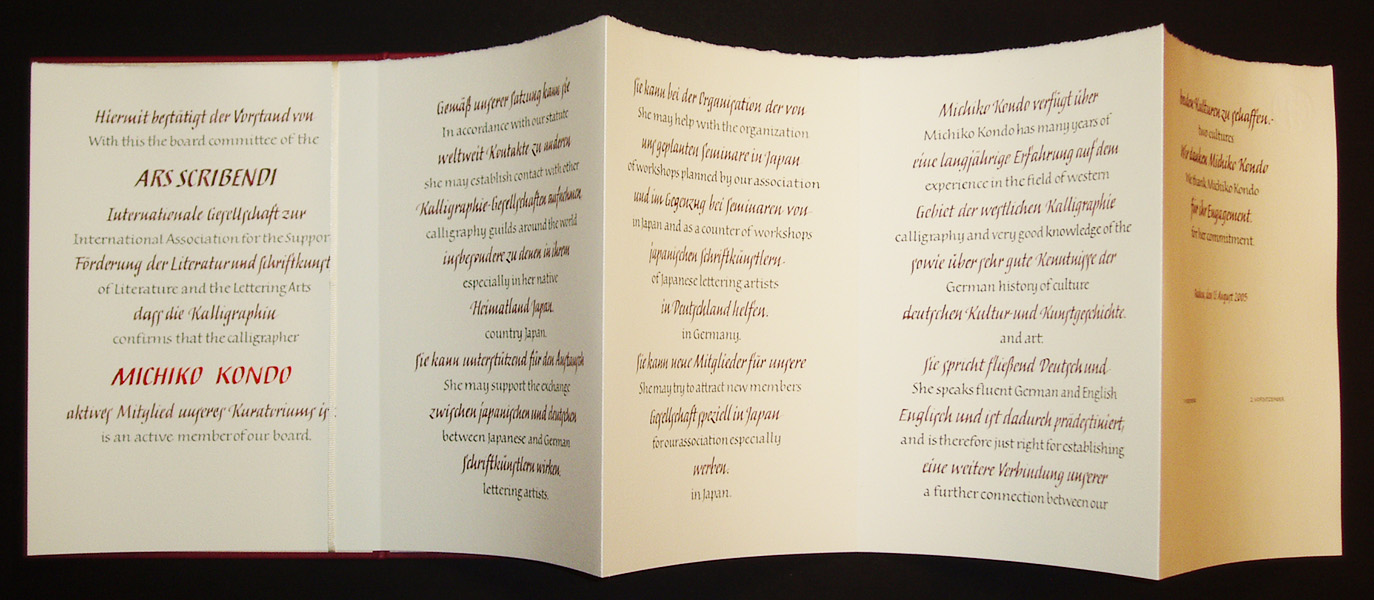 Hiermit bestätigt der Vorstand von
With this the board committee of the
ARS SCRIBENDI
Internationale Gesellschaft zur
International Association for the Suppor
Förderung der Literatur und Schriftkunst
of Literature and the Lettering Arts
dass die Kalligraphin
confirms that the calligrapher
MICHIKO KONDO
aktives Mitglied unseres Kuratoriums is
is an active member of our board.
Gemäß unserer Satzung kann sie
In accordance with our statute
weltweit Kontakte zu anderen
she may establish contact with other
Kalligraphie-Gesellschaften aufnehmen,
calligraphy guilds around the world
insbesondere zu denen in ihrem
especially in her native
Heimatland Japan.
country Japan.
Sie kann unterstützend für den Austausch
She may support the exchange
zwischen japanischen und deutschen
between Japanese and German
Schriftkünstlern wirken.
lettering artists.
Sie kann bei der Organisation der von
She may help with the organization
uns geplanten Seminare in Japan
of workshops planned by our association
und im Gegenzug bei Seminaren von
in Japan and as a counter of workshops
japanischen Schriftkünstlern
of Japanese lettering artists
in Deutschland helfen.
in Germany.
Sie kann neue Mitglieder für unsere
She may try to attract new members
Gesellschaft speziell in Japan
for our association especially
werben.
in Japan.
Michiko Kondo verfügt über
Michiko Kondo has many years of
eine langjährige Erfahrung auf dem
experience in the field of western
Gebiet der westlichen Kalligraphie
calligraphy and very good knowledge of the
sowie über sehr gute Kenntnisse der
German history of culture
deutschen Kultur- und Kunstgeschichte.
and art.
Sie spricht fließend Deutsch und
She speaks fluent German and English
Englisch und ist dadurch prädestiniert,
and is therefore just right for establishing
eine weitere Verbindung unserer
a further connection between our
beiden Kulturen zu schaffen.
two cultures
Wir danken Michiko Kondo
We thank Michiko Kondo
für ihr Engagement.
for her commitment.
den 15 August 2005